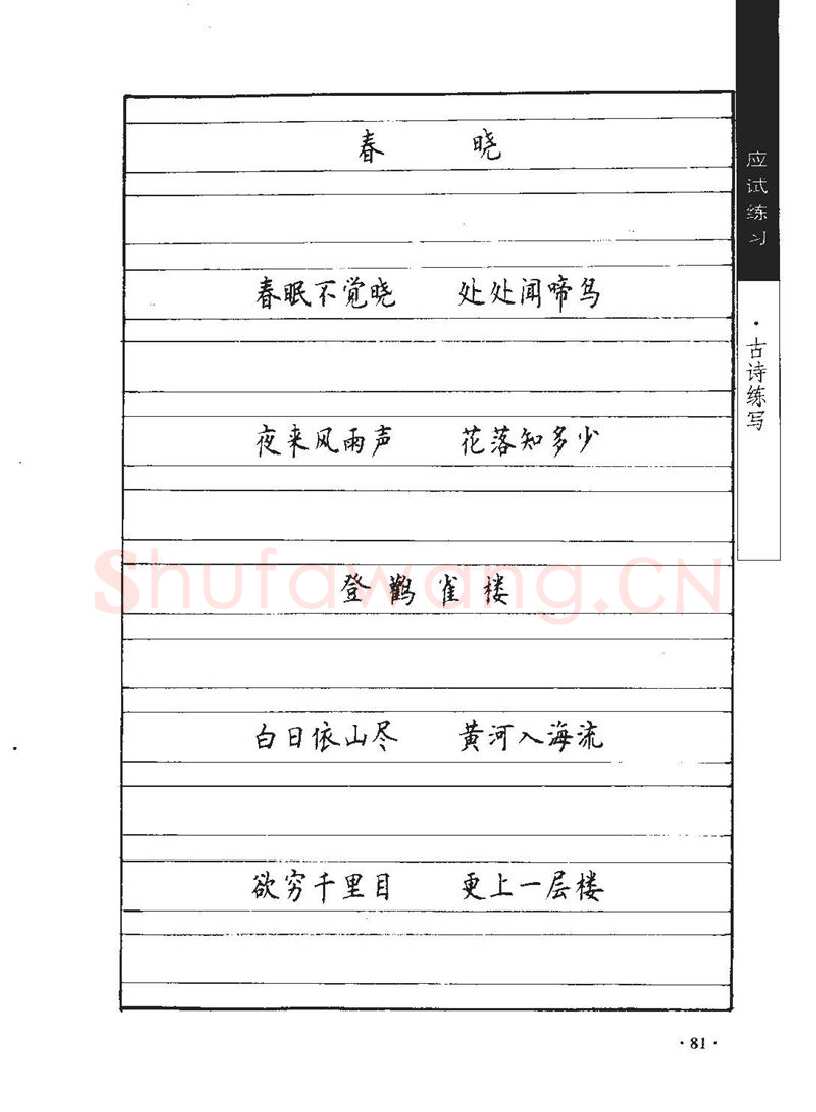 春 晓
春眠不觉晓 处处闻啼鸟
夜来风雨声 花落知多少
登鹳雀楼
白日依山尽 黄河入海流
欲穷千里目 更上一层楼
应试练习
·古诗练写
Shufawang.CN
·81·